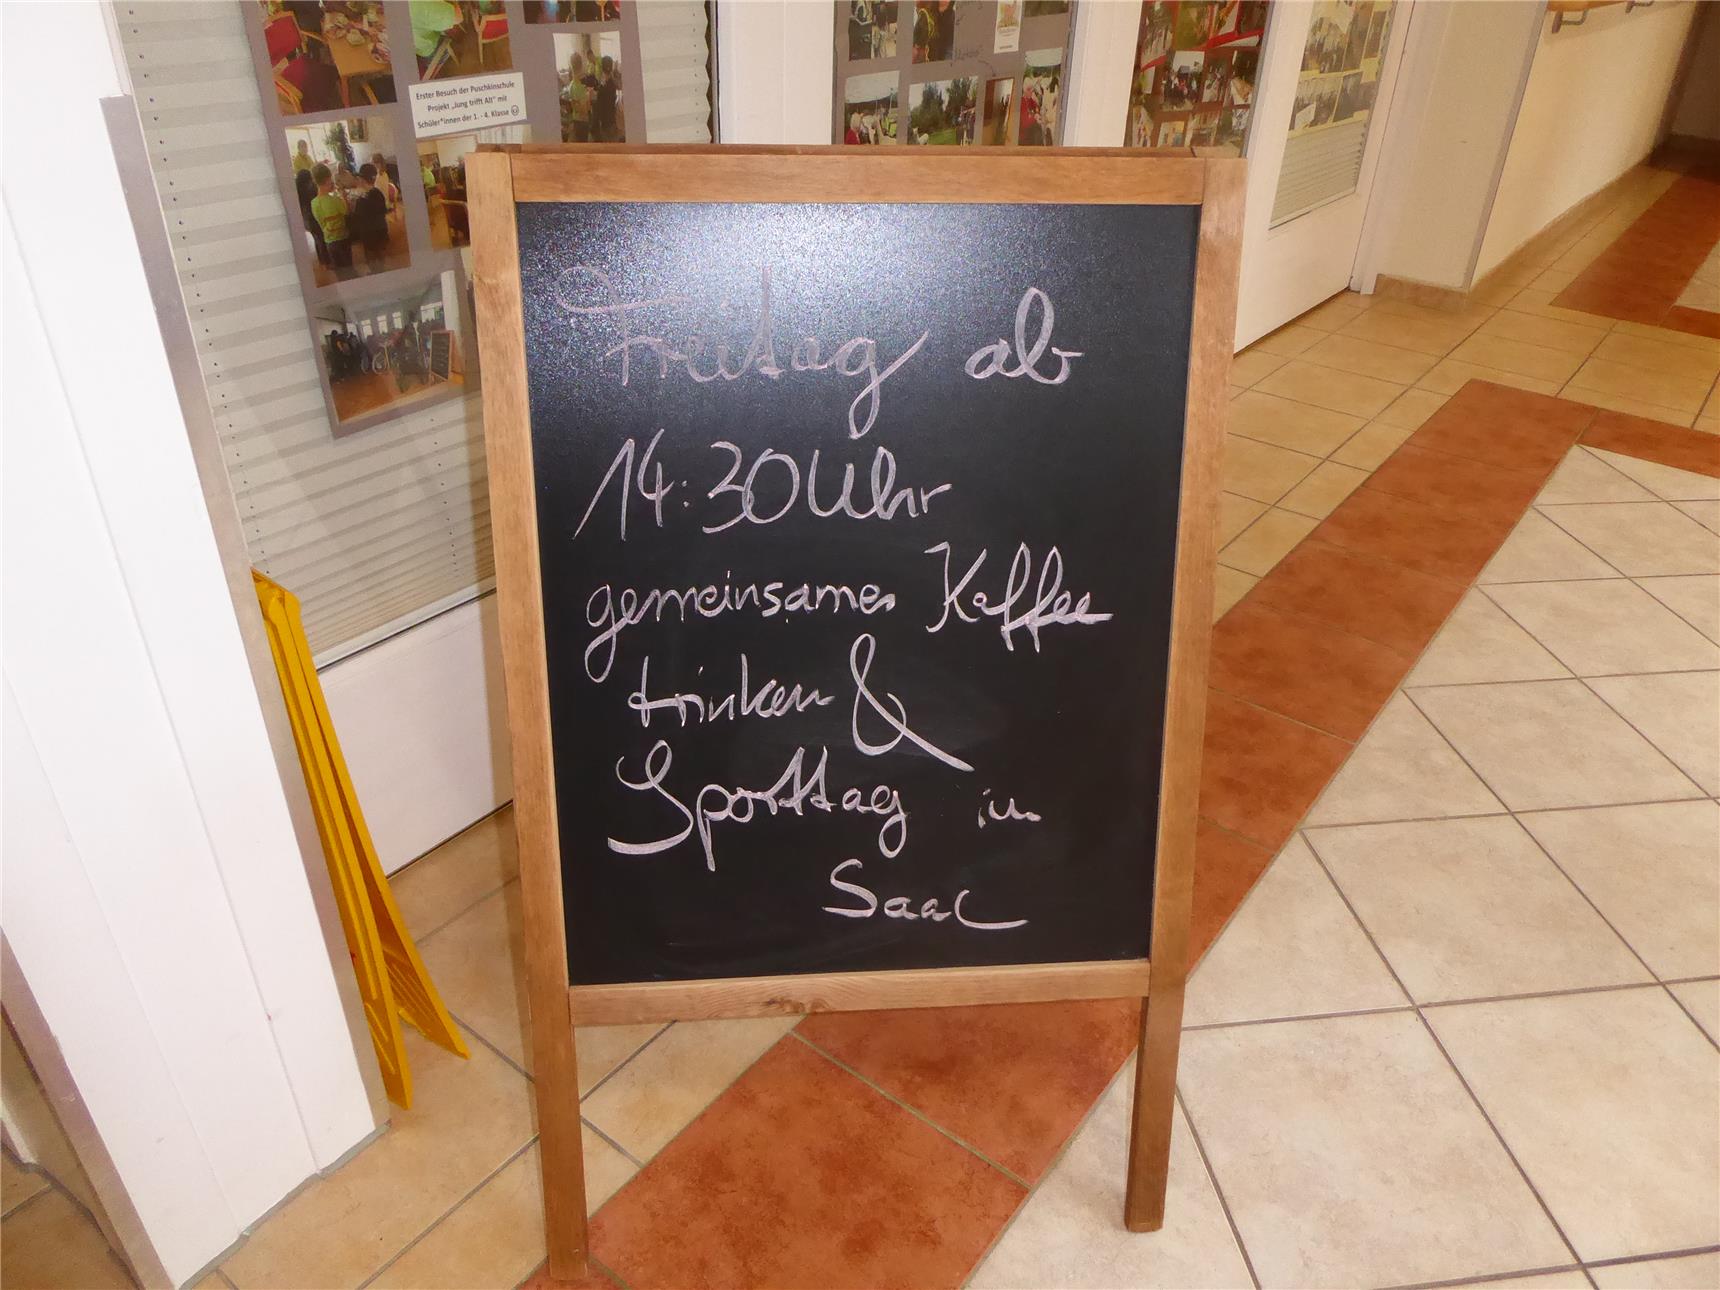 Erster Besuch der Puschkinschule
Projekt „Jung trifft Alt" mit
Schüler*innen der 1. - 4. Klasse ☺
Freitag ab
14:30 Uhr
gemeinsames Kaffee
trinken &
Sporttag im
Saal